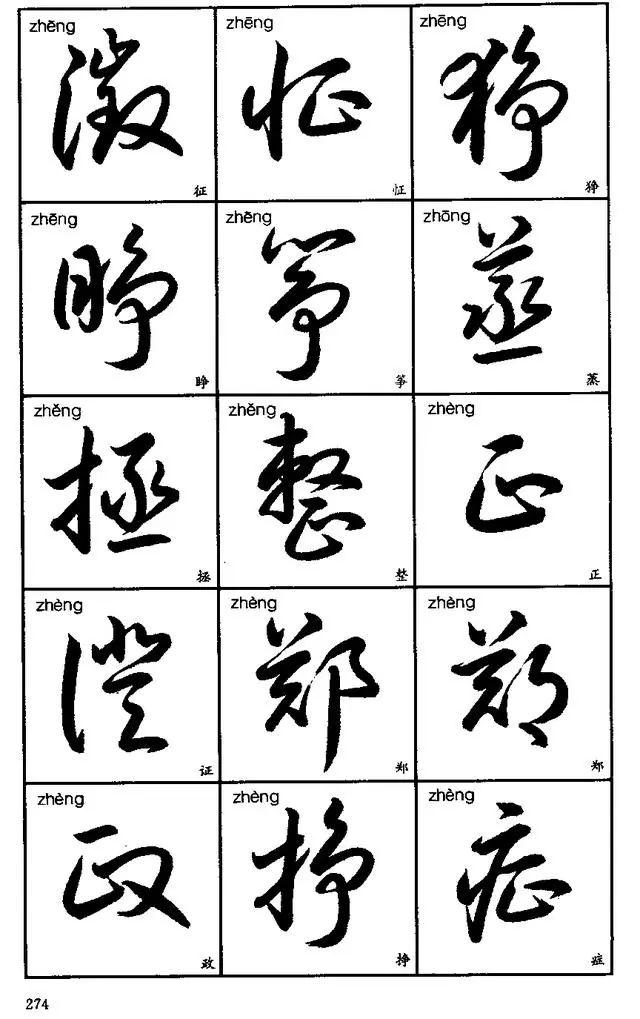 zhēng
徵
征
zhēng
怔
怔
zhēng
狰
狰
zhēng
睁
睁
zhēng
筝
筝
zhōng
蒸
蒸
zhěng
拯
拯
zhěng
整
整
zhèng
正
正
zhèng
證
证
zhèng
郑
郑
zhèng
郑
郑
zhèng
政
政
zhèng
挣
挣
zhèng
症
症
274